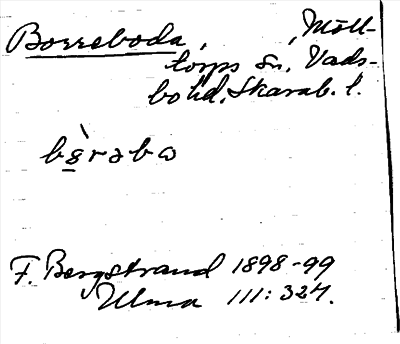 Borreboda, , Möll-
torps sn, Vads-
bo hd, Skarab. l.
bò̤rəbω
F. Bergstrand 1898-99
Ulma 111:327.